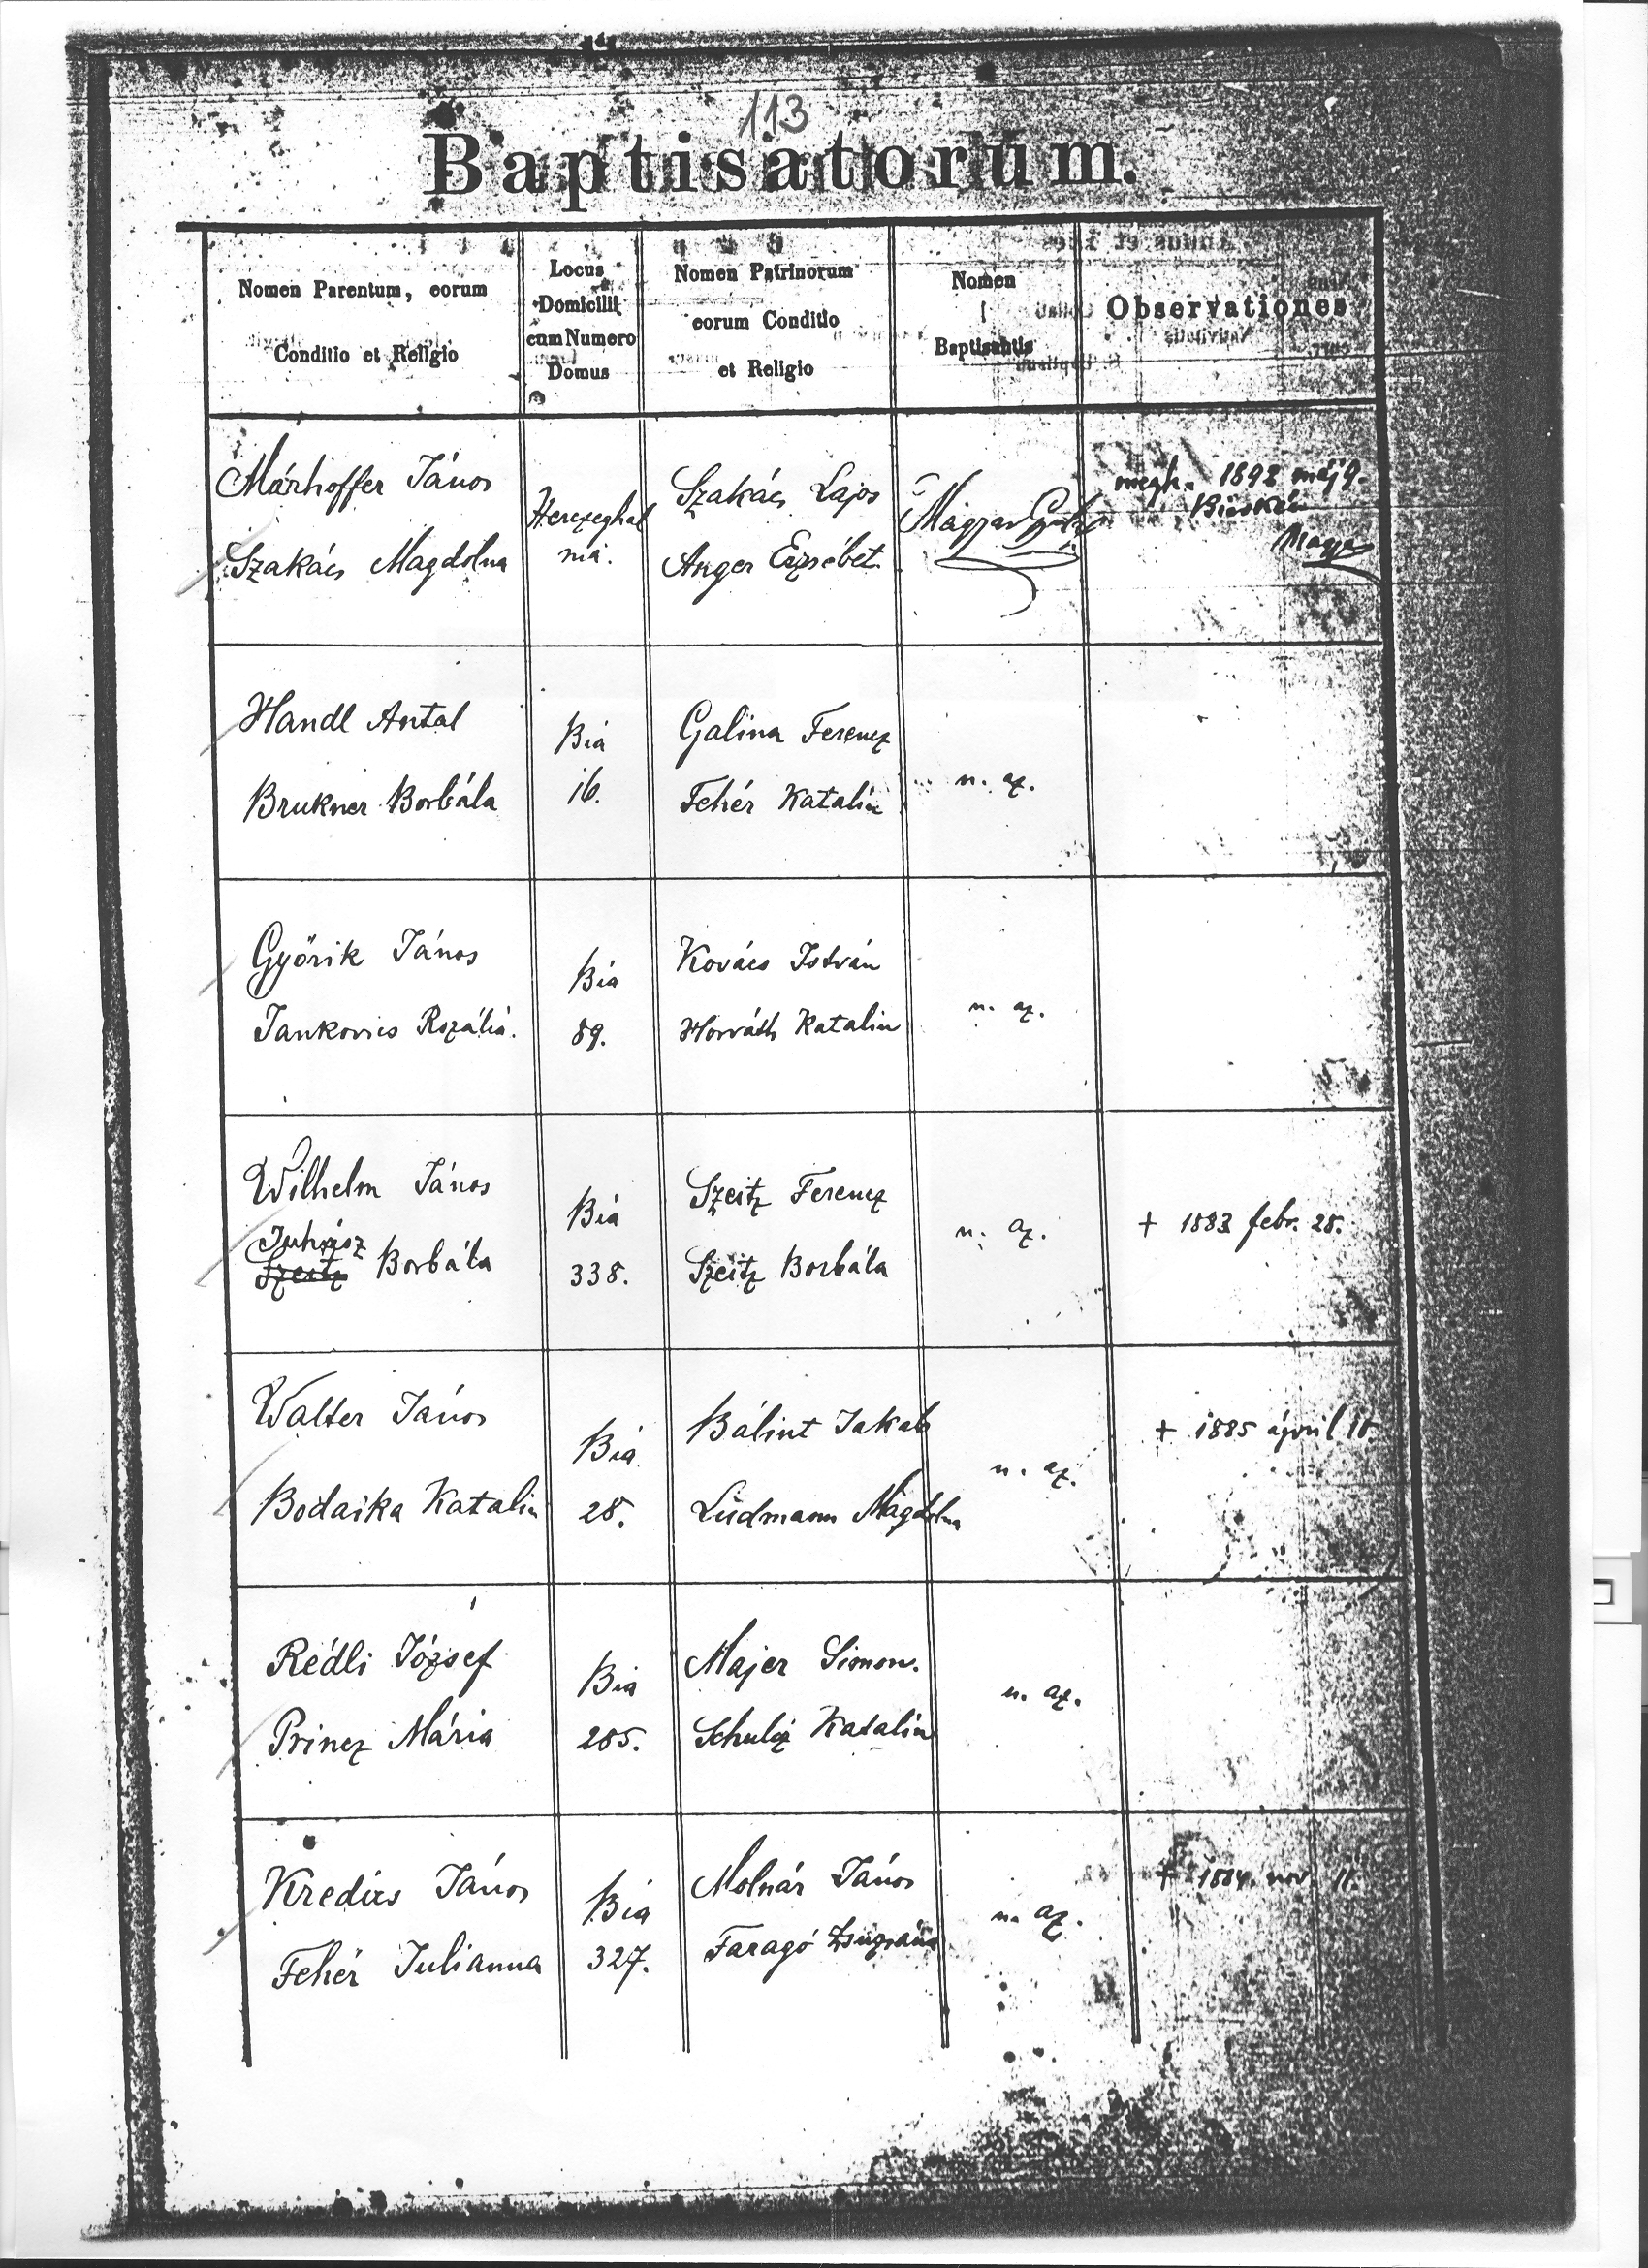 113
Baptisatorum.
Nomen Parentum, eorum
Conditio et Religio
Locus
Domicilii
cum Numero
Domus
Nomen Patrinorum
eorum Conditio
et Religio
Nomen
Baptisantis
Observationes
Márhoffer János
Szakács Magdolna
Herczeghal
ma.
Szakács Lajos
Anger Erzsébet
Magyar
megh. 1892 máj 9.
Handl Antal
Brukner Borbála
Bia
16.
Galina Ferencz
Fehér Katalin
u. az.
Győrik János
Jankovics Rozália.
Bia
89.
Kovács István
Horváth Katalin
u. az.
Wilhelm János
Juhász
Szeitz Borbála
Bia
338.
Szeitz Ferencz
Szeitz Borbála
u. az.
+ 1883 febr. 28.
Walter János
Bodaika Katalin
Bia
28.
Bálint Jakab
Ludmann Magdolna
u. az.
+ 1885 ápril 18.
Rédli József
Princz Mária
Bia
285.
Majer Simon.
Schulcz Katalin
u. az.
Kredics János
Fehér Julianna
Bia
327.
Molnár János
Faragó Zsuzsána
u. az.
+ 1884. nov. 11.